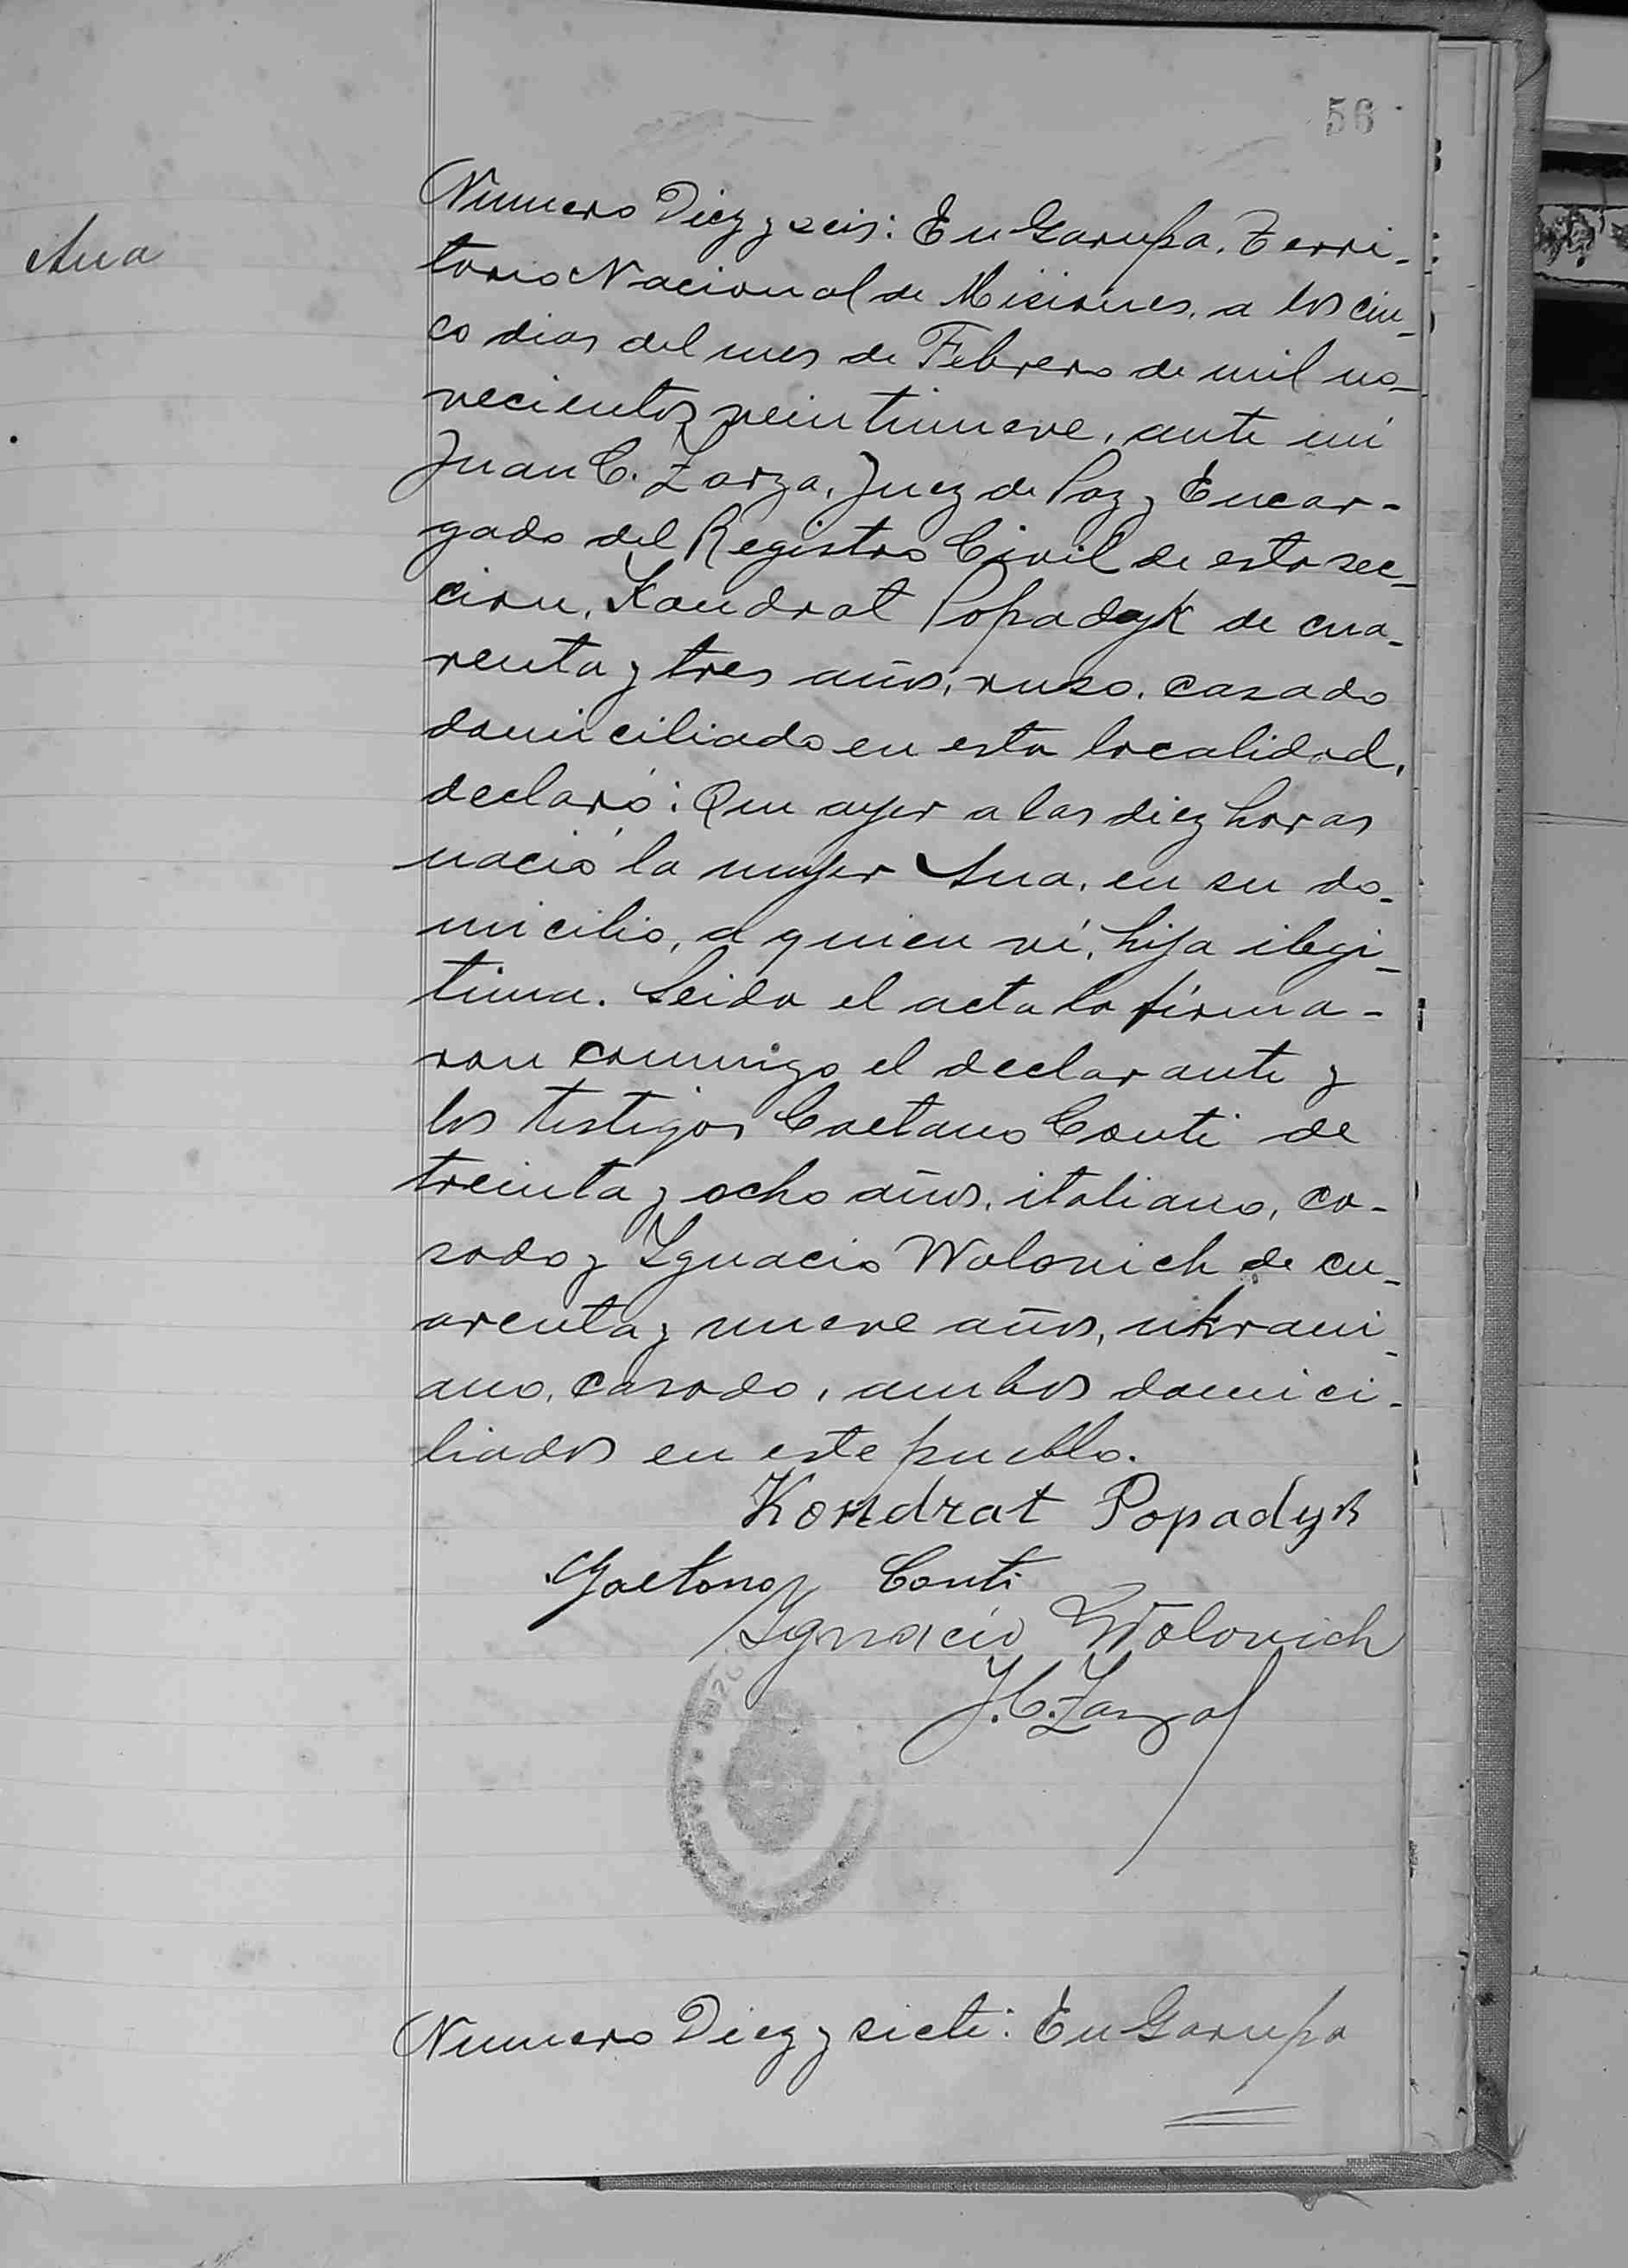 56
Ana
Numero Diez y seis: En Garupa, Terri-
torio Nacional de Misiones, a los cin-
co dias del mes de Febrero de mil no-
vecientos veintinueve, ante mi
Juan C. Zarza, Juez de Paz y Encar-
gado del Registro Civil de esta sec-
cion, Kondrat Popadyk de cua-
renta y tres años, ruso, casado
domiciliado en esta localidad,
declaró: Que ayer a las diez horas
nació la mujer Ana, en su do-
micilio, a quien ví, hija ilegi-
tima. Leida el acta la firma-
ron conmigo el declarante y
los testigos Caetano Conti de
treinta y ocho años, italiano, ca-
sado y Ignacio Wolonich de cu-
arenta y nueve años, ukrani-
ano, casado, ambos domici-
liados en este pueblo.
Kondrat Popadyk
Gaetano Conti
Ignacio Wolonich
J. C. Zarza
Numero Diez y siete: En Garupa